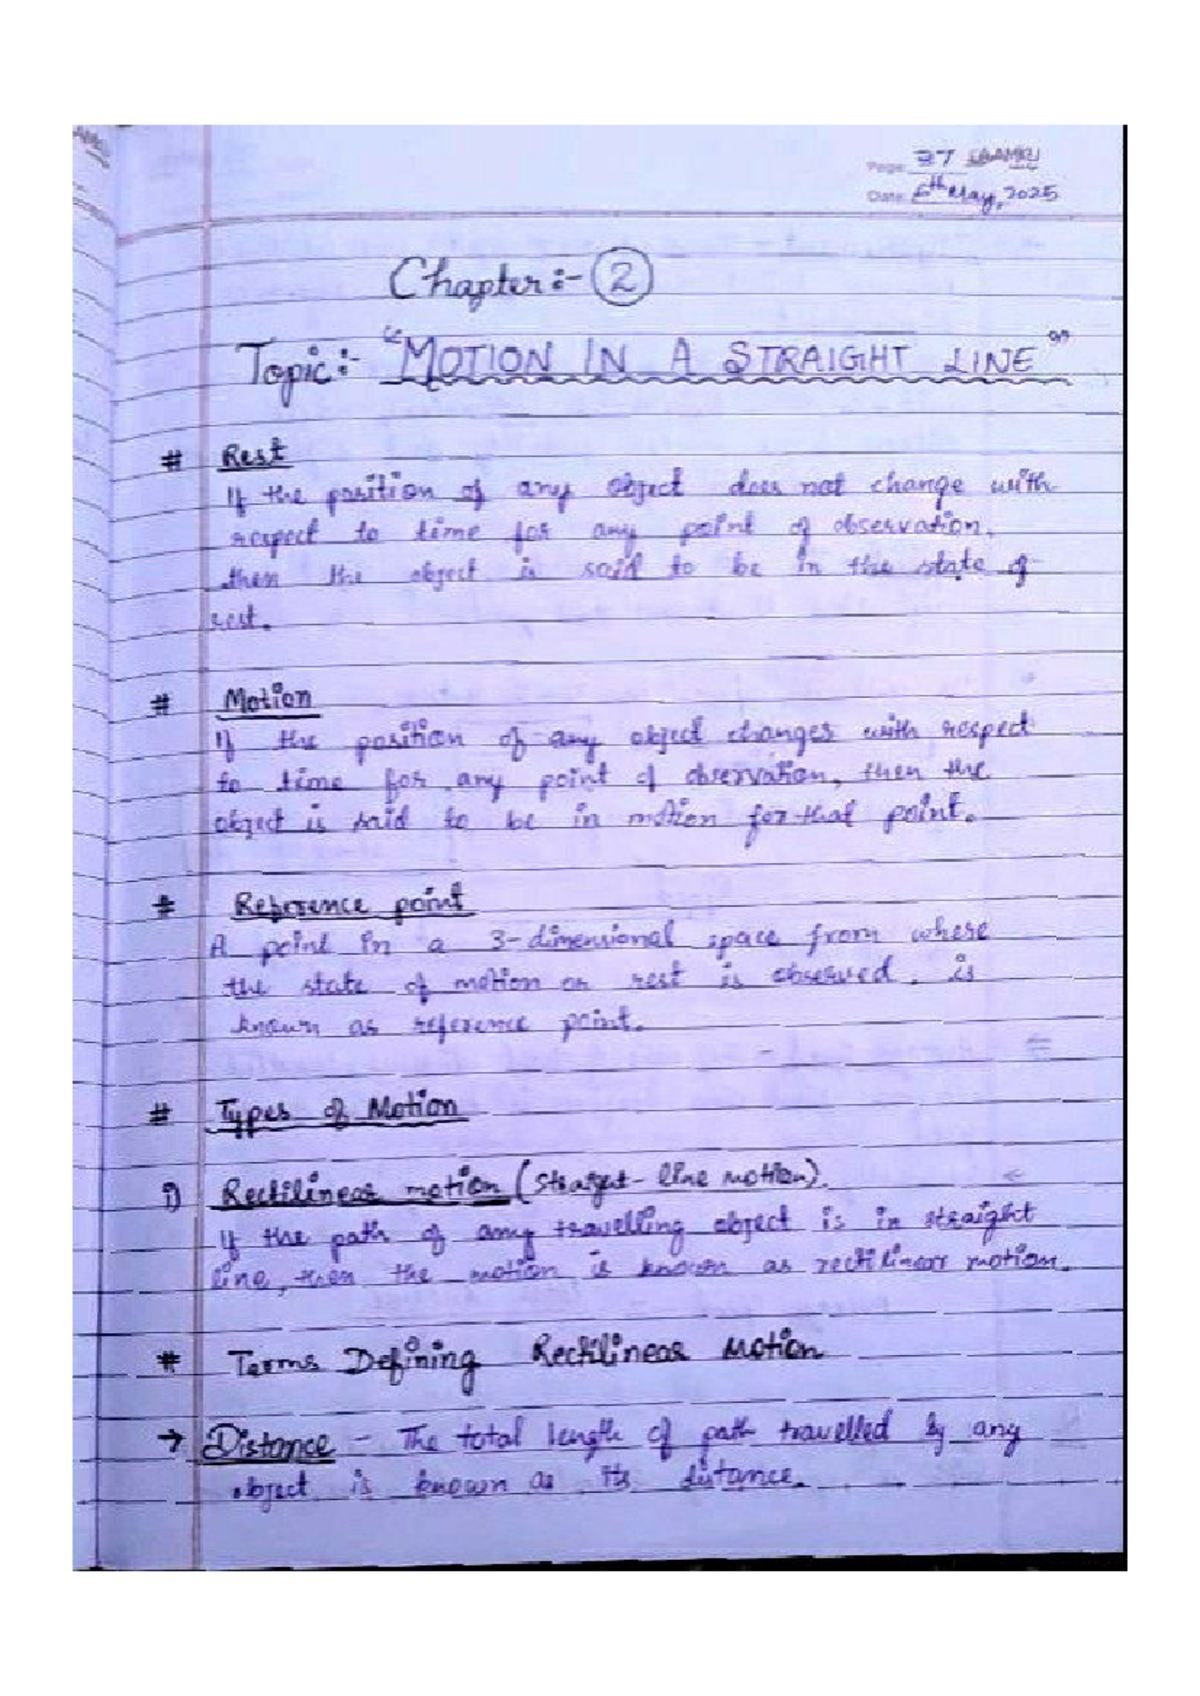 Page: 37 SAAMRJ
Date: 6th May, 2025
Chapter:- 2
Topic:- "MOTION IN A STRAIGHT LINE"
# Rest
If the position of any object does not change with
respect to time for any point of observation,
then the object is said to be in the state of
rest.
# Motion
If the position of any object changes with respect
to time for any point of observation, then the
object is said to be in motion for that point.
# Reference point
A point in a 3-dimensional space from where
the state of motion or rest is observed, is
known as reference point.
# Types of Motion
i) Rectilinear motion (straight-line motion).
If the path of any travelling object is in straight
line, then the motion is known as rectilinear motion.
# Terms Defining Rectilinear Motion
→ Distance - The total length of path travelled by any
object is known as its distance.